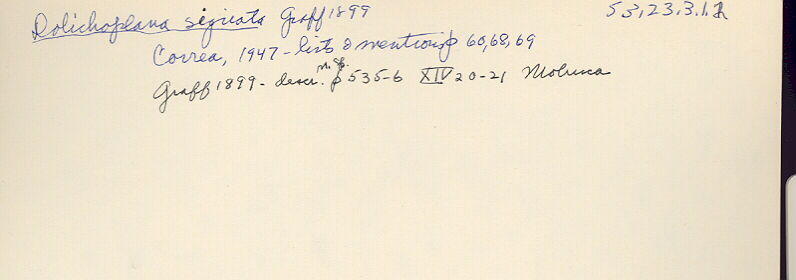 Dolichoplana signata Graff 1899 53,23.3.1.1
Correa, 1947 - lists & mentions p 60, 68, 69
Graff 1899 - descr. n. sp. p 535-6 XIV 20-21 Molucca